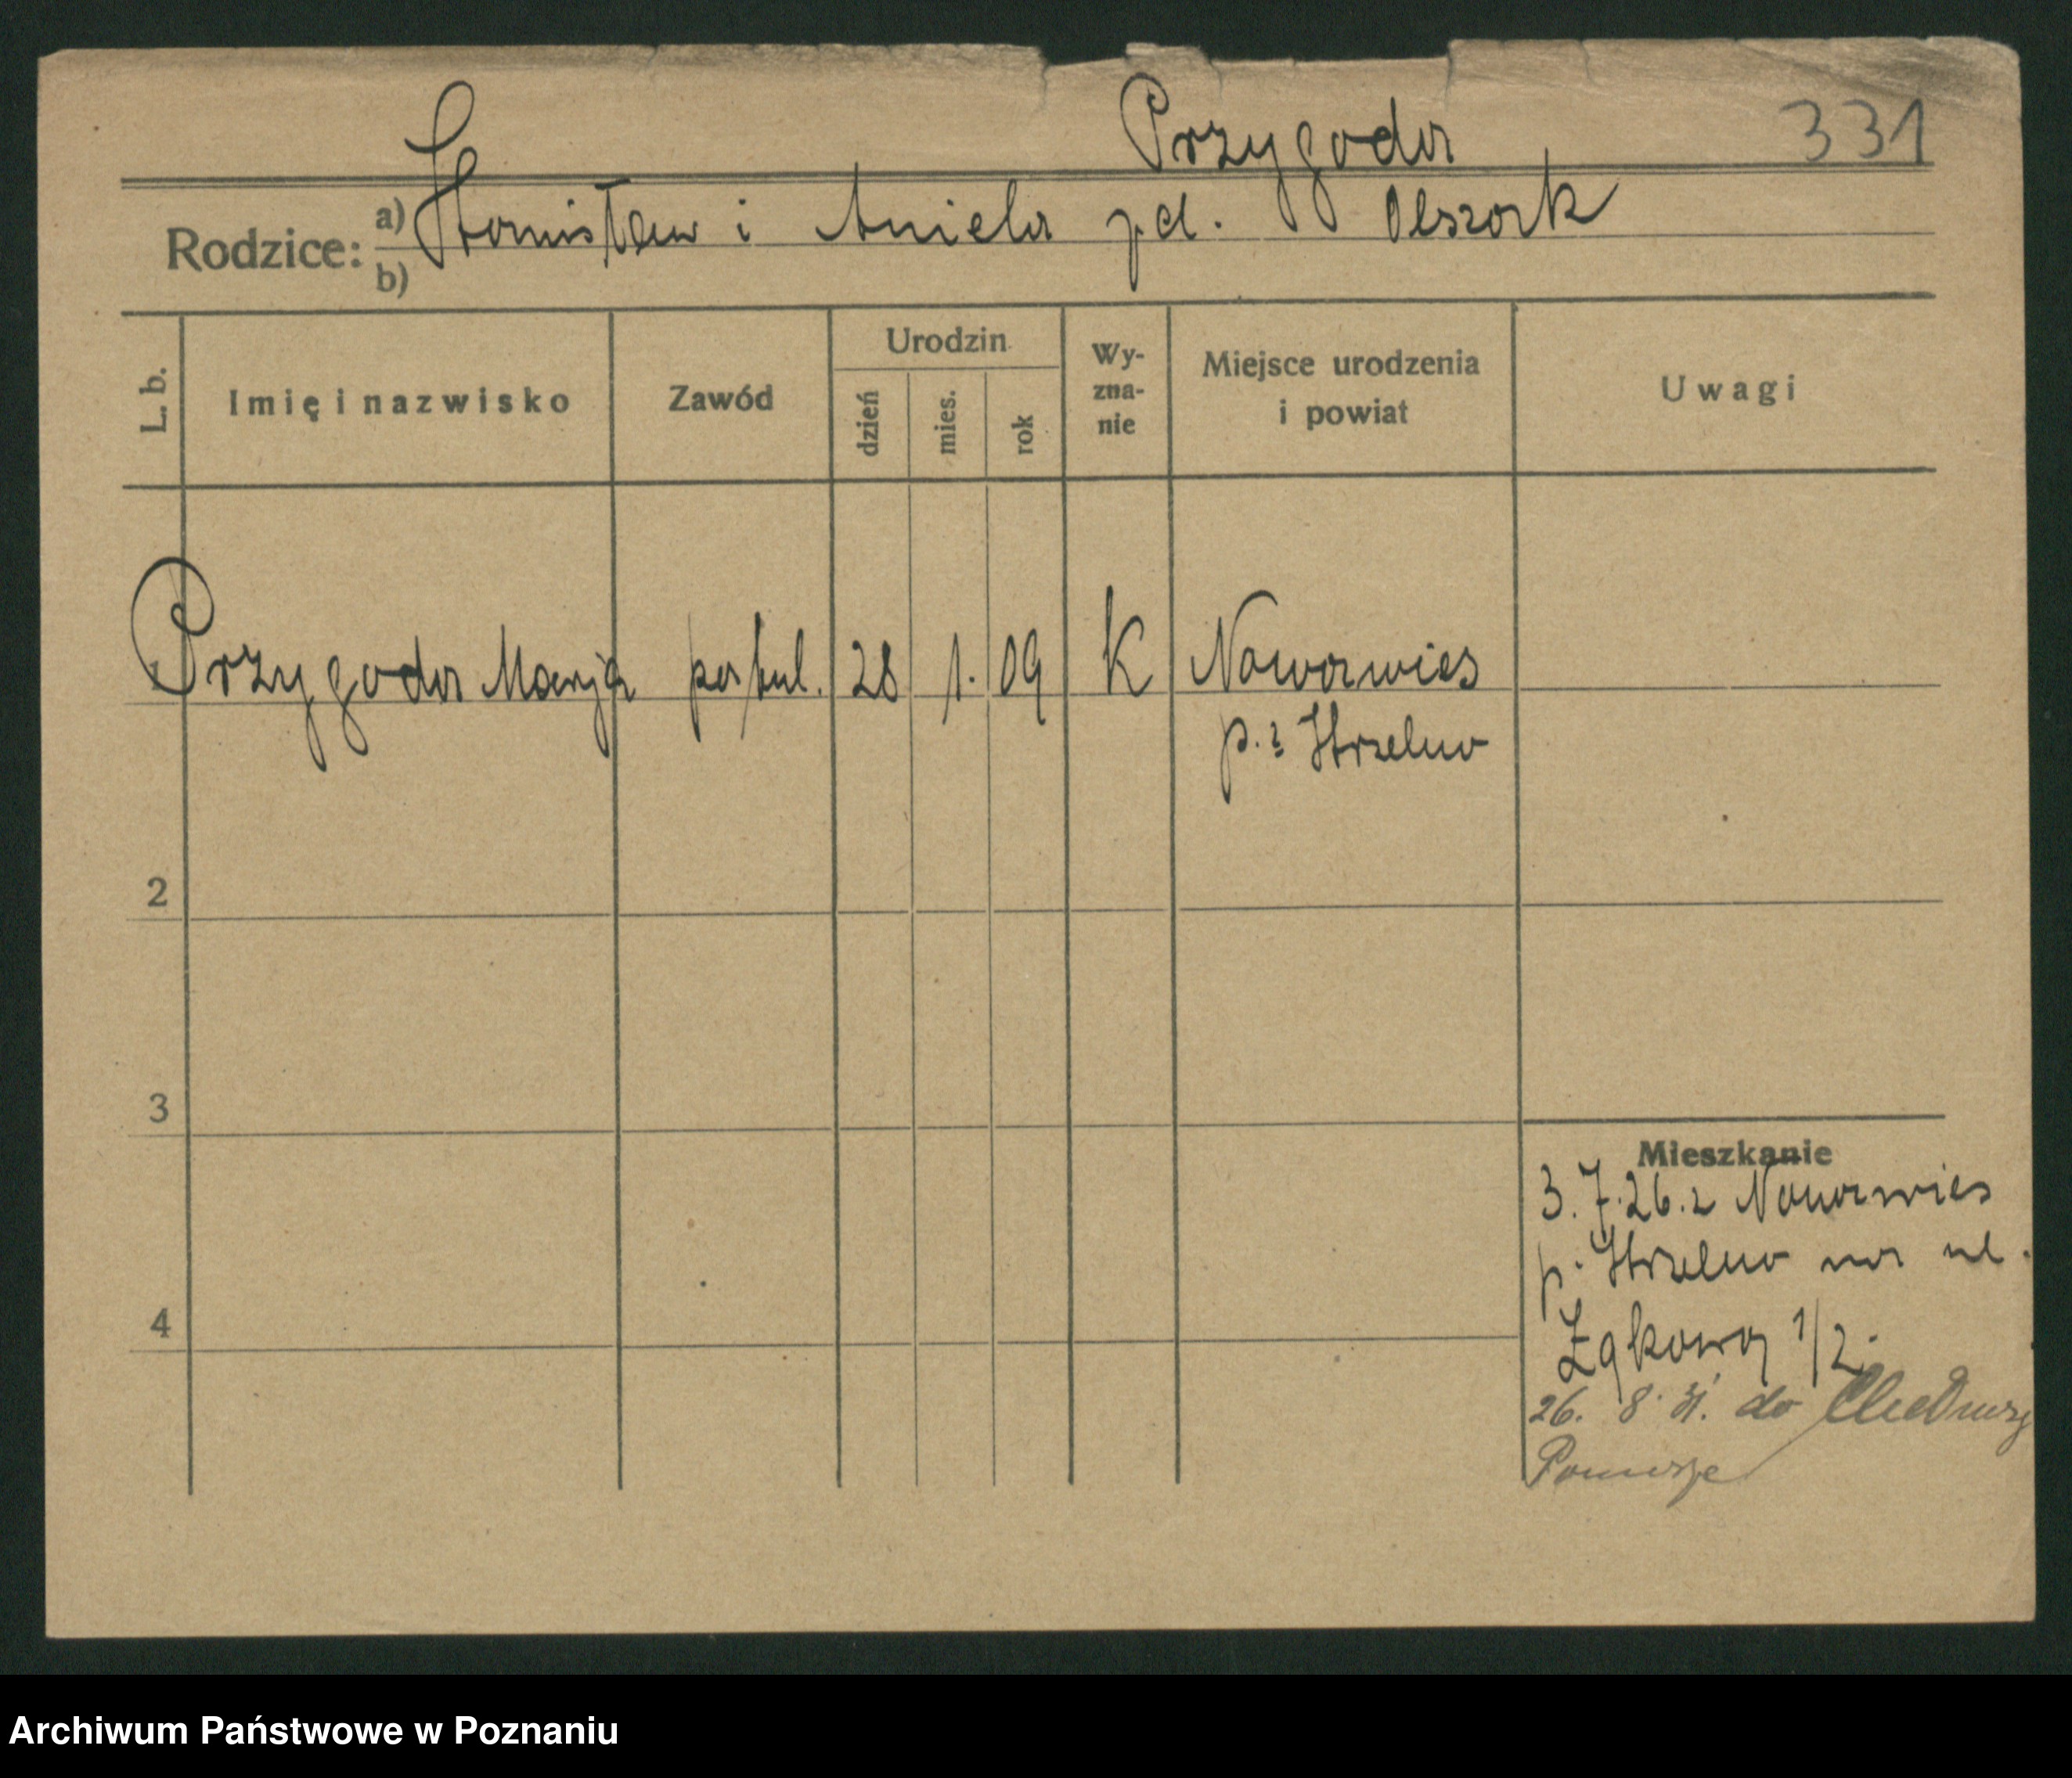 Przygoda 331
Rodzice: a) Stanisław i Aniela zd. Olszak
b)
L. b. Imię i nazwisko Zawód Urodzin dzień mies. rok Wy-zna-nie Miejsce urodzenia i powiat Uwagi
Przygoda Marja postul. 28 1. 09 K Nowawies
p. Strzelno
2
3
4
Mieszkanie
3.7.26. z Nowawies
p. Strzelno na ul.
Łąkową 1/2.
26. 8. 31. do
Pomorze
Archiwum Państwowe w Poznaniu